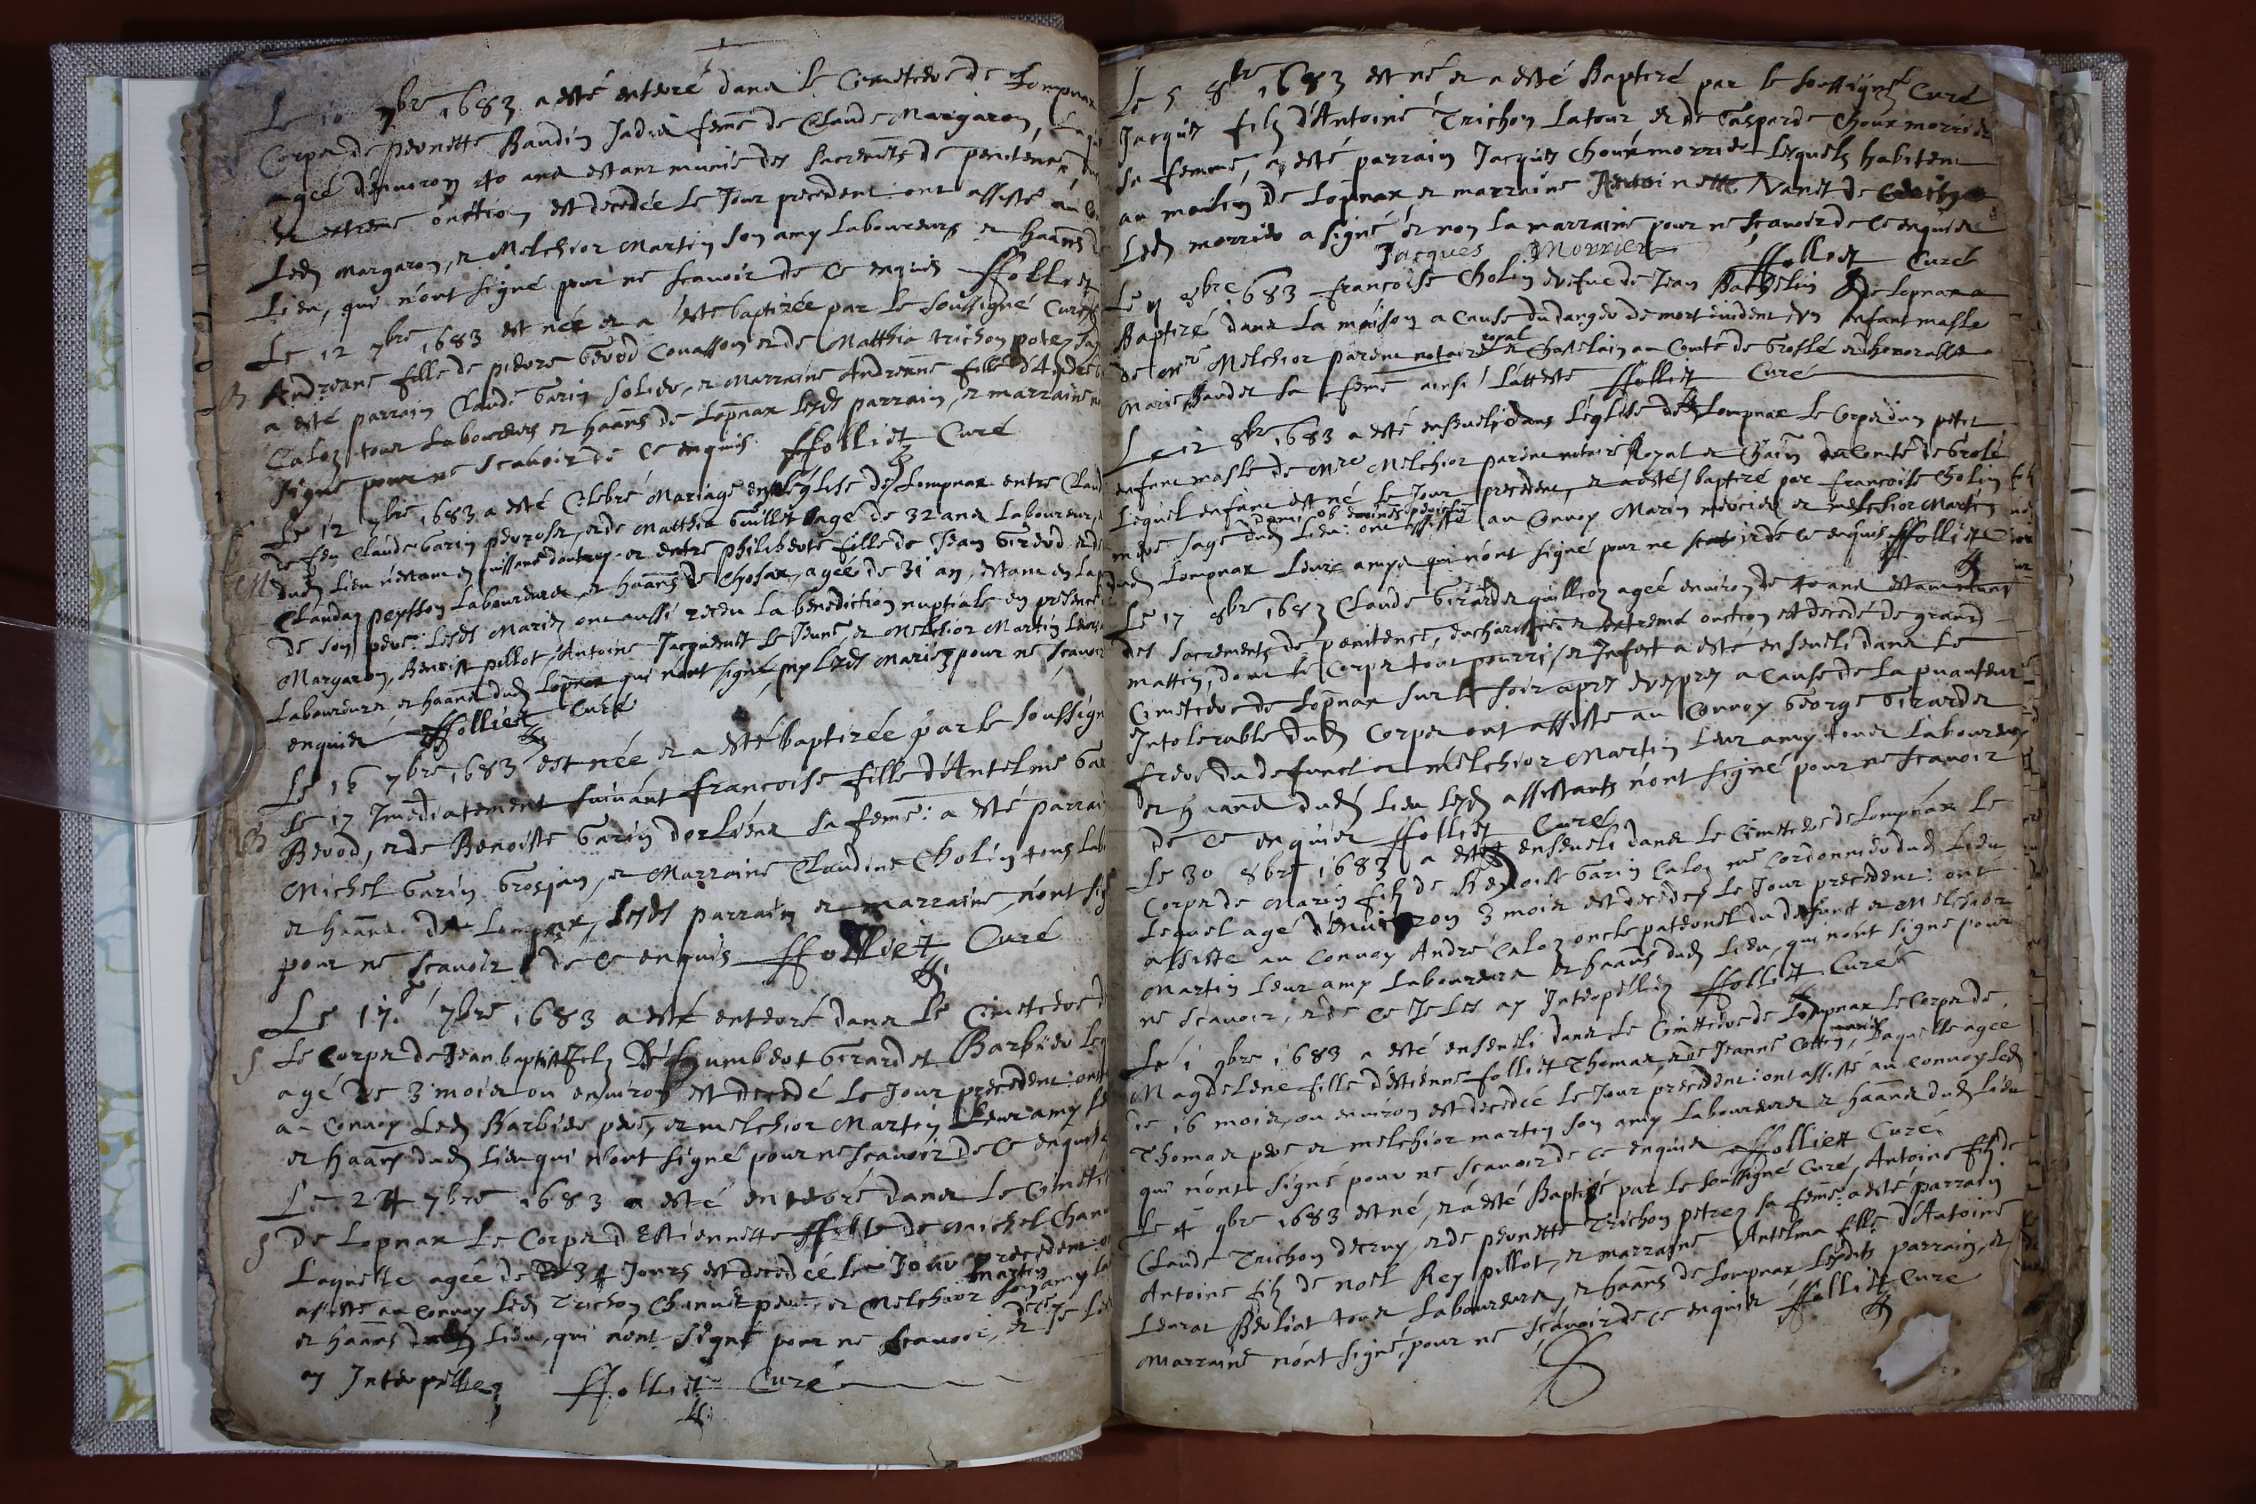 Le 10 7bre 1683 a esté enteré dans le Cimetere de Lompnax
Corps de pernette Baudin Jadis feme de Claude Margaron,
agée d'environ 40 ans estant munie des sacremts de penitence
et extreme onction est decedée le Jour precedent ont assisté au
Led. Margaron, et Melchior Martin son amy laboureurs et haans
Lieu, qui n'ont signé pour ne scavoir de ce enquis ffolliet
Le 12 7bre 1683 est née et a esté baptizée par le soussigné Curé
B Andreane fille de piere Gerod Couasson et de Matthia trichon
a esté parrain Claude Garin solider, et Marraine Andreane fille d'André
Caloz tous Laboureurs et haans de Lopnax lesds parrain, et marraine
signé pour ne scavoir de ce enquis ffolliet Curé
Le 12 7bre 1683 a esté Celebré Mariage en l'église de Lompnax entre Claud
M de feu Claude Garin peyrosez, et de Matthia Guillet agé de 32 ans Laboureur,
dud. Lieu n'estant en puissance d'autruy et entre philiberte fille de Jean Girerd
Claudaz peysson Laboureurs et haans de Chosax, agée de 31 an, estant en la
de son pere: lesds Mariez ont aussi receu la benediction nuptiale en presence
Margaron, Benoist pillot, Antoine Jacquemet le Jeune, et Melchior Martin
Laboureurs, et haans dud. Lopnax qui n'ont signé, ny lesds Mariez pour ne scavoir
enquis ffolliet Curé
Le 16 7bre 1683 est née et a esté baptizée par le soussigné
Le 17 Imediatement suivant francoise fille d'Antelme
B Berod, et de Benoiste Garin sa feme: a esté parrain
Michel Garin Grosjan, et Marraine Claudine Cholin tous
et haans de Lompnax, lesds parrain et marraine, n'ont
pour ne scavoir de ce enquis ffolliet Curé
Le 17 7bre 1683 a esté enteré dans le Cimetere
S Le Corps de Jean baptiste filz de humbert Girardet Barbier
agé de 3 mois ou environ est decedé le Jour precedent: ont
au Convoy Led. Barbier pere, et melchior Martin leur amy
et haans dud. Lieu qui n'ont signé pour ne scavoir de ce enquis
Le 24 7bre 1683 a esté enteré dans le Cimetere
S De Lopnax Le Corps d'Estiennette fille de Michel
Laquelle agée de 34 Jours est decedée le Jour precedent
assisté au Convoy led. Trichon Chanut pere, et Melchior Martin son amy
et haans dud. Lieu, qui n'ont signé pour ne scavoir, de ce Je
ay Interpellez ffolliet Curé
Le 5 8bre 1683 est né et a esté Baptizé par le soussigné Curé
Jacques filz d'Antoine Trichon Latour et de Gasparde Choux morrier
sa femme, a esté parrain Jacques Choux morrier lesquels habitent
au molin de Lopnax et marraine Antoinette Vanet de
Led. morrier a signé et non la marraine pour ne scavoir de ce enquise
Jacques Morrier ffolliet Curé
Le 11 8bre 1683 francoise Cholin vefue de Jean Barthelin de Lopnax a
Baptizé dans la maison a Cause du danger de mort evident un enfant masle
de Mre Melchior parent notaire royal et Chastelain au Comté de Groslé et d'honorable
Marie Baudet sa feme ainsi l'atteste ffolliet Curé
Le 12 8bre 1683 a esté enseveli dans l'église de Lompnax le Corps d'un petit
enfant masle de Mre Melchior parent notaire Royal et Chain du Comté de Grolé
Lequel enfant est né le Jour precedent, et a esté baptizé par francoise Cholin
mere sage dud. Lieu: ont assisté au Convoy Marin mercier et melchior Martin
dud. Lompnax leurs amys qui n'ont signé pour ne scavoir de ce enquis ffolliet
Le 17 8bre 1683 Claude Girardet quillioz agée environ de 40 ans estant muni
des sacrements de penitence, eucharistie et extreme onction est decedé de grand
mattin, dont le Corps tout pourri, et Infect a esté enseveli dans le
Cimetere de Lopnax sur le soir apres vespres a Cause de la puanteur
Intolerable dud. Corps ont assisté au Convoy George Girardet
frere du defunct et melchior Martin leur amy tous Laboureurs
et haans dud. Lieu lesds assistants n'ont signé pour ne scavoir
de ce enquis ffolliet Curé
Le 30 8bre 1683 a esté enseveli dans le Cimettere de Lompnax le
Corps de Marin filz de Benoist Garin Caloz me Cordonnier dud. Lieu
Lequel agé d'environ 3 mois est decedez le Jour precedent: ont
assisté au Convoy André Caloz oncle paternel du defunct et Melchior
Martin leur amy Laboureurs et haans dud. Lieu, qui n'ont signé pour
ne scavoir, et de ce Je les ay Interpellez ffolliet Curé
Le 1 9bre 1683 a esté enseveli dans le Cimettere de Lompnax le Corps de
Magdelene fille d'Estienne folliet Thomas, et de Jeanne Cottin, Laquelle agée
de 16 mois, ou environ est decedée le Jour precedent: ont assisté au Convoy led.
Thomas pere et melchior martin son amy Laboureurs et haans dud. Lieu
qui n'ont signé pour ne scavoir de ce enquis ffolliet Curé
Le 4 9bre 1683 est né, et a esté Baptizé par le soussigné Curé, Antoine filz de
Claude Trichon decruy, et de pernette Trichon petrez sa feme: a esté parrain
Antoine filz de noel Rey pillot, et marraine Antelma fille d'Antoine
Leurat Berliat tous Laboureurs, et haans de Lompnax lesdts parrain, et
Marraine n'ont signé, pour ne scavoir de ce enquis ffolliet Curé